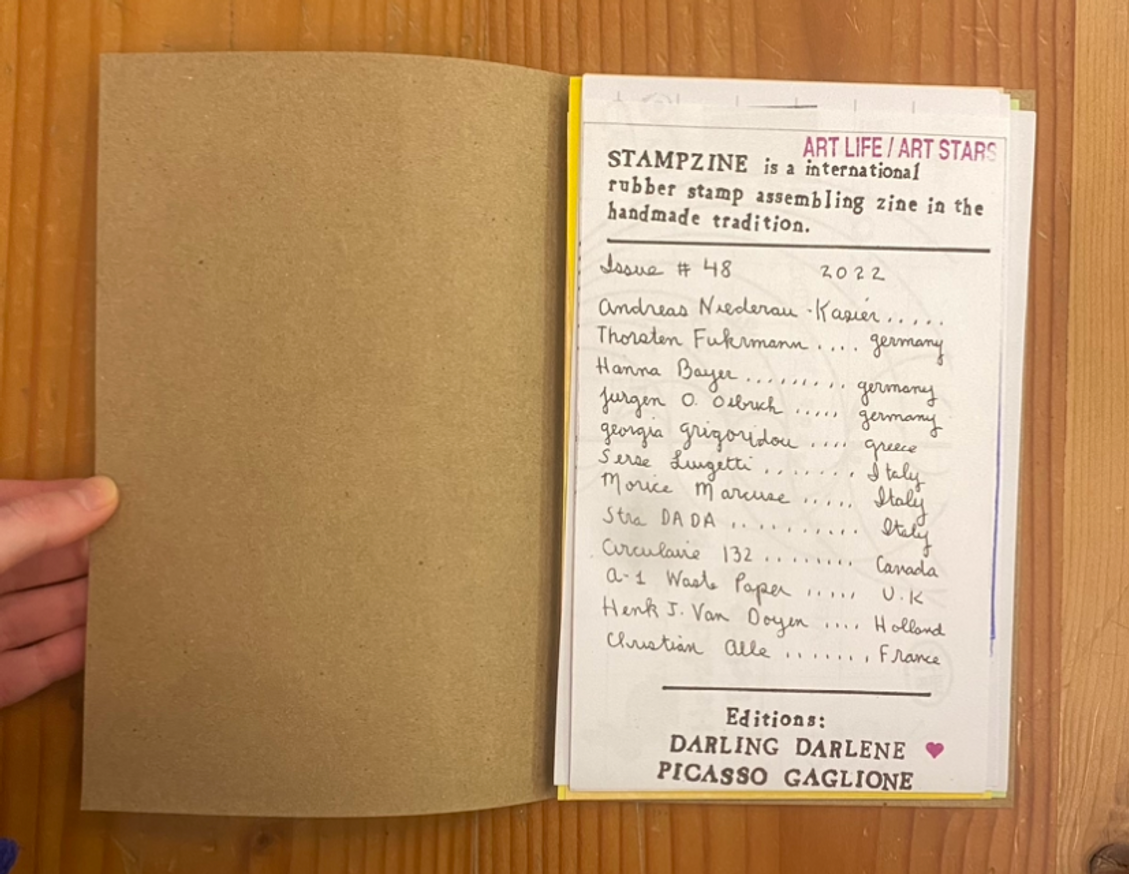 ART LIFE / ART STARS
STAMPZINE is a international
rubber stamp assembling zine in the
handmade tradition.
Issue # 48 2022
Andreas Niederau-Kasiér.....
Thorsten Fukrmann .... germany
Hanna Bayer ......... germany
Jurgen O. Olbrich ..... germany
georgia grigoridou .... greece
Serse Luigetti ....... Italy
Morice Marcuse ..... Italy
Stra DADA .......... Italy
Circulaire 132 ........ Canada
A-1 Waste Paper ..... U.K
Henk J. Van Doyen .... Holland
Christian Alle ....... France
Editions:
DARLING DARLENE ♥
PICASSO GAGLIONE